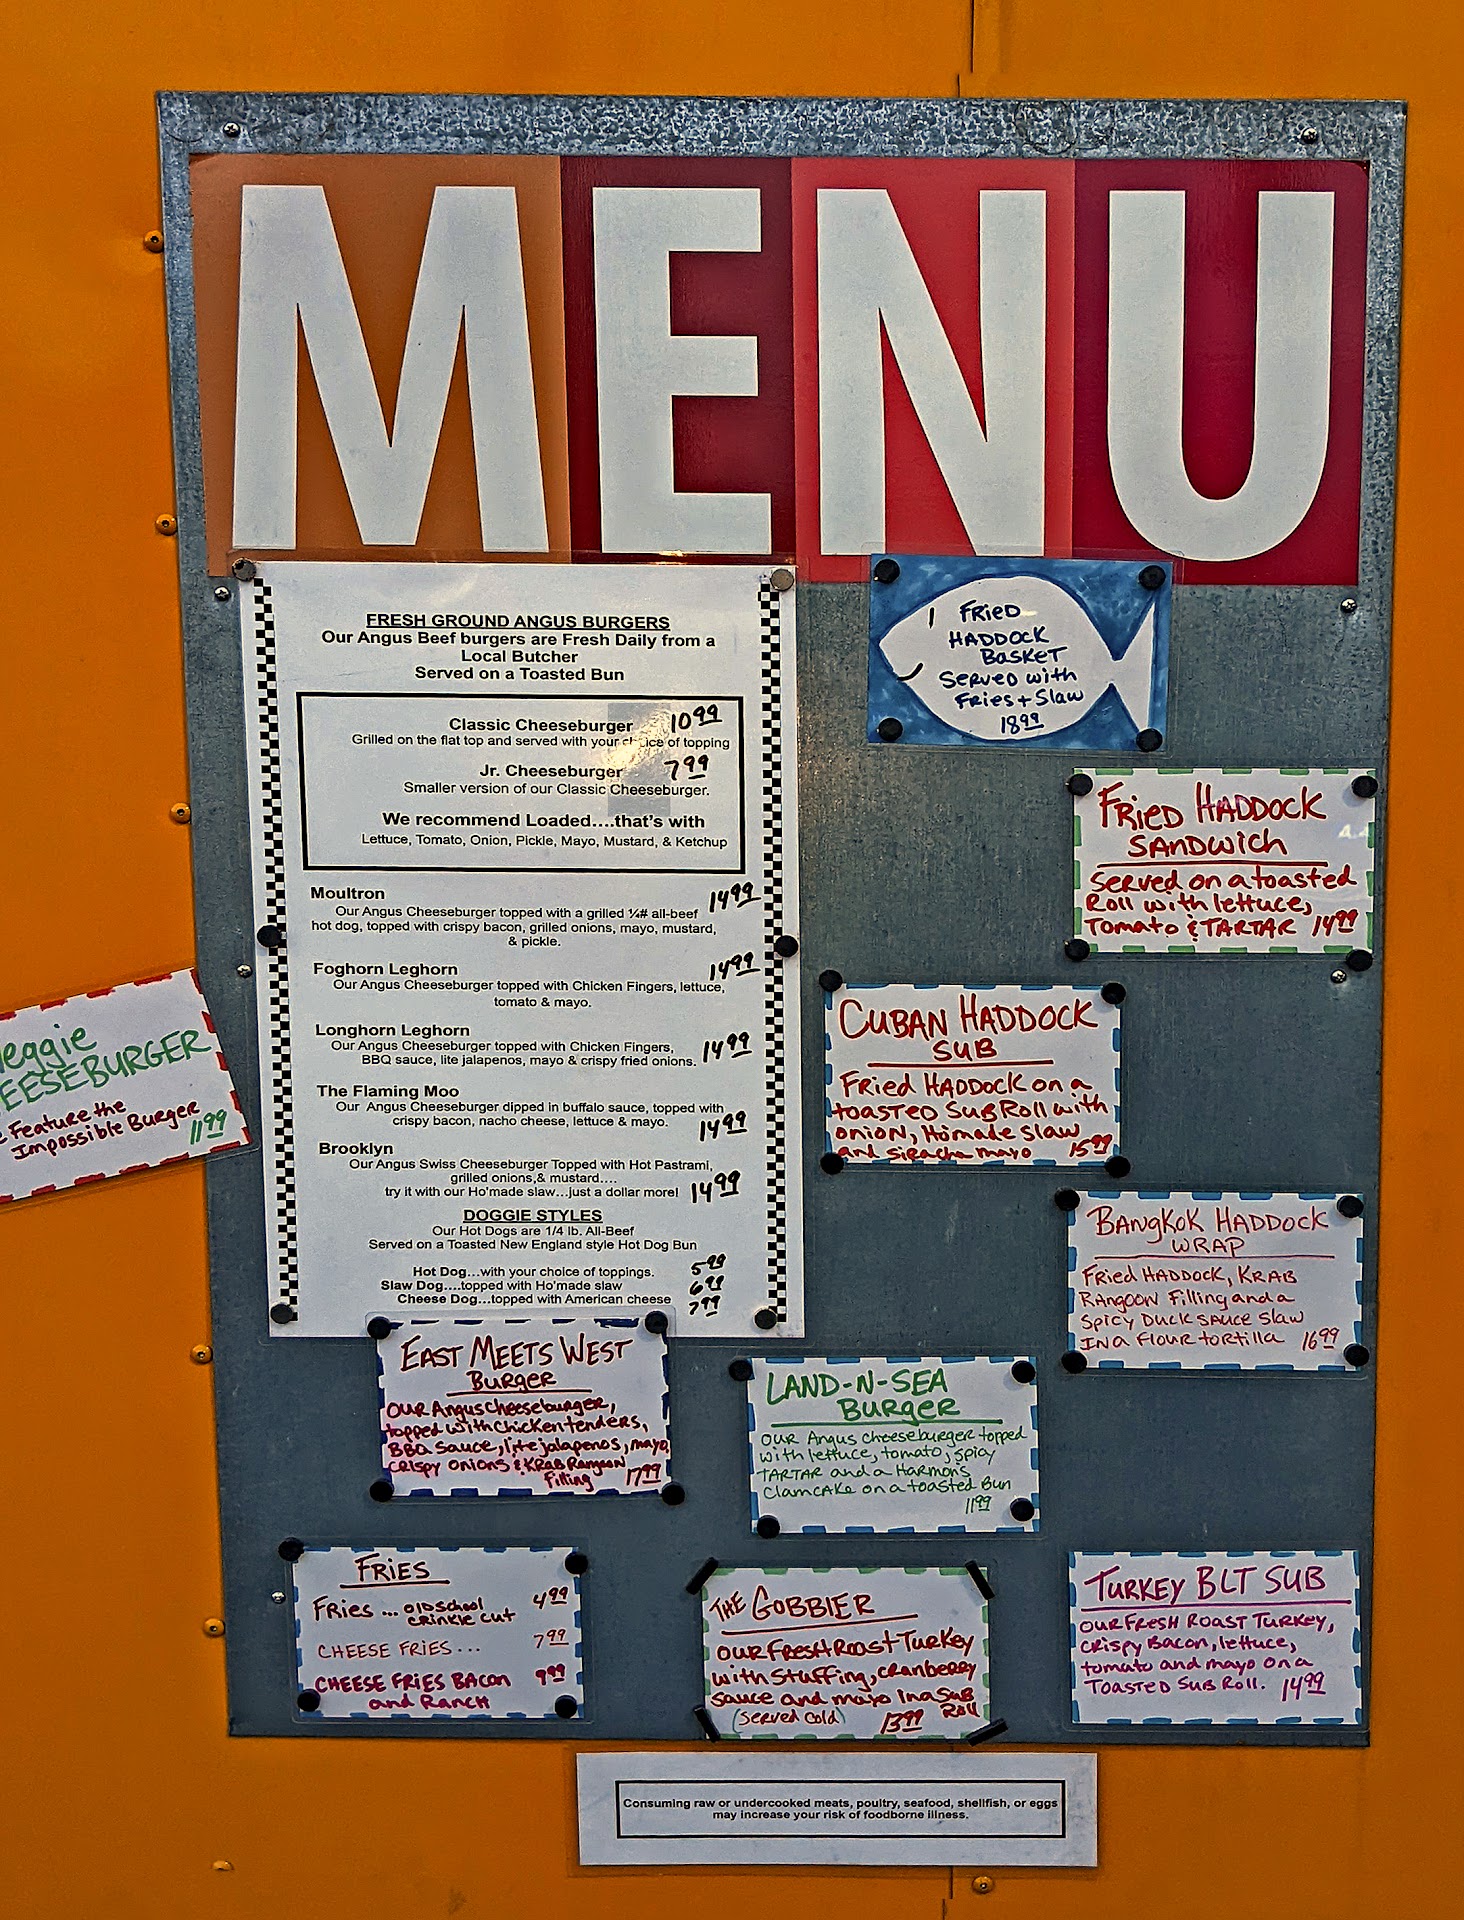 MENU
FRESH GROUND ANGUS BURGERS
Our Angus Beef burgers are Fresh Daily from a
Local Butcher
Served on a Toasted Bun
Classic Cheeseburger 10.99
Grilled on the flat top and served with your choice of topping
Jr. Cheeseburger 7.99
Smaller version of our Classic Cheeseburger.
We recommend Loaded....that's with
Lettuce, Tomato, Onion, Pickle, Mayo, Mustard, & Ketchup
Moultron 14.99
Our Angus Cheeseburger topped with a grilled ¼# all-beef
hot dog, topped with crispy bacon, grilled onions, mayo, mustard,
& pickle.
Foghorn Leghorn 14.99
Our Angus Cheeseburger topped with Chicken Fingers, lettuce,
tomato & mayo.
Longhorn Leghorn
Our Angus Cheeseburger topped with Chicken Fingers, 14.99
BBQ sauce, lite jalapenos, mayo & crispy fried onions.
The Flaming Moo
Our Angus Cheeseburger dipped in buffalo sauce, topped with
crispy bacon, nacho cheese, lettuce & mayo. 14.99
Brooklyn
Our Angus Swiss Cheeseburger Topped with Hot Pastrami,
grilled onions,& mustard....
try it with our Ho'made slaw...just a dollar more! 14.99
DOGGIE STYLES
Our Hot Dogs are 1/4 lb. All-Beef
Served on a Toasted New England style Hot Dog Bun
Hot Dog...with your choice of toppings. 5.99
Slaw Dog....topped with Ho'made slaw 6.99
Cheese Dog...topped with American cheese 7.99
FRIED
HADDOCK
BASKET
SERVED with
FRIES + Slaw
18.99
FRIED HADDOCK
SANDWICH
SERVED on a toasted
Roll with lettuce,
Tomato & TARTAR 14.99
CUBAN HADDOCK
SUB
FRIED HADDOCK on a
toasted SUB Roll with
onion, Homade slaw
and siracha mayo 15.99
BANGKOK HADDOCK
WRAP
FRIED HADDOCK, KRAB
RANGOON Filling and a
SPICY DUCK SAUCE SLAW
IN a FLOUR tortilla 16.99
eggie
EESEBURGER
Feature the
Impossible Burger 11.99
EAST MEETS WEST
BURGER
OUR Angus cheeseburger,
topped with chicken tenders,
BBQ sauce, lite jalapenos, mayo,
crispy onions & KRAB Rangoon
Filling 17.99
LAND-N-SEA
BURGER
OUR Angus cheeseburger topped
with lettuce, tomato, spicy
TARTAR and a Harmon's
Clamcake on a toasted Bun
11.99
FRIES
FRIES ... OLD School
crinkle cut 4.99
CHEESE FRIES ... 7.99
CHEESE FRIES BACON
and RANCH 9.99
THE GOBBIER
OUR FRESH Roast TURKEY
with Stuffing, cranberry
sauce and mayo In a SUB
(served cold) 13.99 Roll
TURKEY BLT SUB
OUR FRESH ROAST TURKEY,
CRISPY BACON, lettuce,
tomato and mayo on a
TOASTED SUB Roll. 14.99
Consuming raw or undercooked meats, poultry, seafood, shellfish, or eggs
may increase your risk of foodborne illness.